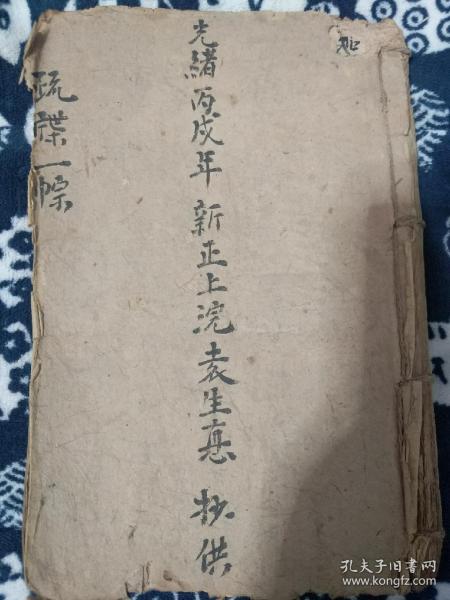 光緒丙戌年 新正上浣袁生惪 抄供
疏牒一㡧
孔夫子旧书网
www.kongfz.com